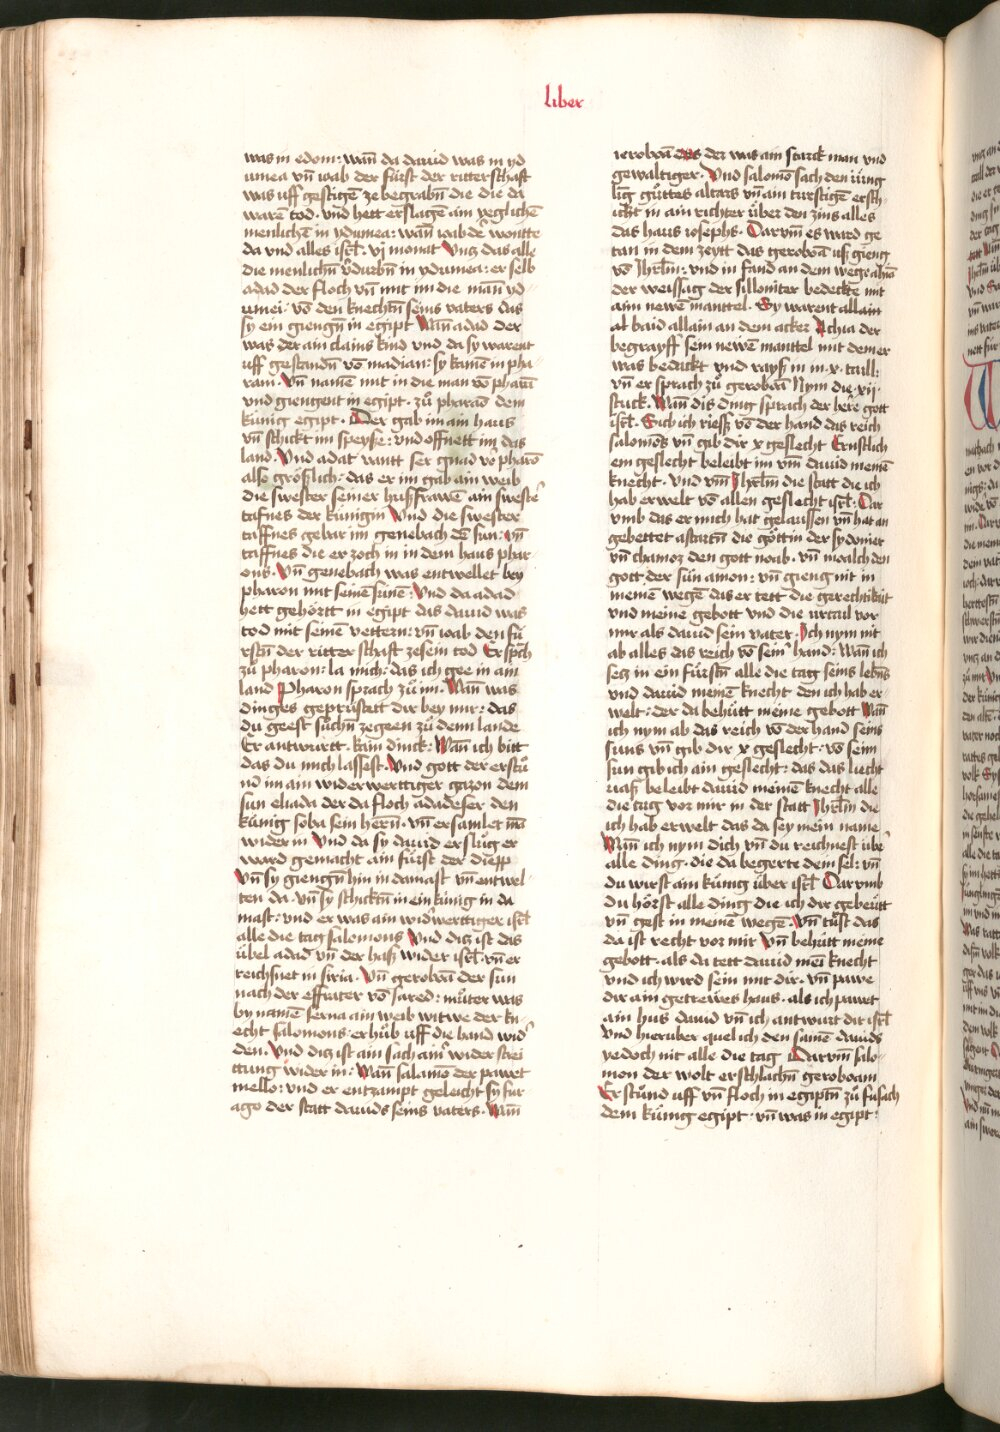 liber
was in edom: wañ da dauid was in yd
umea vñ ioab der fürst der ritterschaft
was uff gestigē ze begrabñ die die da
warē tod. vnd hett erslagē am yeglichē
menlichē in ydumea: wañ ioab dē wontte
da vnd alles isrl. vj monat Vntz das alle
die menlichñ v̄durbñ in ydumea: er selb
adad der floch vñ mit im die mañ yd
umei. vō den knechtñ seins vaters das
sy ein giengñ in egipt Wañ adad der
was der ain clains kind vnd da sy warent
uff gestandñ vō madian: sy kamē in pha
ran. vñ namē mit in die man vō pharā
vnd giengent in egipt. zů pharao dem
künig egipt. Der gab im ain haus
vñ schickt im speyse: vnd offnett im das
land. Vnd adat vantt ser gnad vō pharō
also größlich: das er im gab ain weib
die swester seiner husfrawē ain sweste
tafnes der künigin Vnd die swester
taffnes gebar im genebach dē sun: vñ
taffnes die er zoch in in dem haus phar
ons. Vñ genebach was entwellet bey
pharon mit seinē sunē: Vnd da adad
hett gehörtt in egipt das dauid was
tod mit seinē vettern: vñ ioab den fü
rstñ der ritter schaft ze sein tod Er sp̄ch
zů pharon: la mich: das ich gee in am
land Pharon sprach zů im. Wañ was
dinges geprüstatt dir bey mir: das
du geest sůchñ ze geen zů deim lande
Er antwurtt. kain dinck: Wañ ich bitt
das du mich lassest. Vnd gott der erstů
nd im ain wider werttiger gazon dem
sun eliada der da floch adadeser den
künig soba sein herñ. vñ er samlet mā
wider in Vnd da sy dauid er slůg er
ward gemacht ain fürst der diepp
Vñ sy giengñ hin in damast vñ entwel
ten da. vñ sy schicktñ in ein künig in da
mast: vnd er was ain widwerttiger isrl
alle die tag salomons Vnd ditz ist das
übel adad vñ der hass wider isrl. vñ er
reichsnet in siria. Vñ geroboā der sun
nach der effrater vō sared: můter was
by namē serua ain weib witwe der kn
echt salomons: er hůb uff die hand wid
den. Vnd ditz ist ain sach am̄ wider strei
ttung wider in: Wañ salamō der pawet
mello: vnd er entzampt geleicht sy fur
ago der statt dauids seins vaters. Wañ
ieroboā der was ain starck man vnd
gewaltiger. Vnd salomō sach den iüng
ling gůttes altars vñ ain turstigē ersch
ickt in ain richter über den zins alles
das haus iosephs. Darvm̄ es ward ge
tan in dem zeytt das geroboā ußz gieng
vō Jhrlm̄: vnd in fand an dem weg achia
der weissag der silloniter bedeckte mit
aim newē manttel. Sy warent allain
al baid allain an dem acker Achia der
begrayff sein newē manttel mit dem er
was bedeckt vnd rayß in in .x. taill:
vñ er sprach zů geroboā Nym die .xij.
stuck. Wañ dis ding sprach der herē gott
isrl. Sich ich riesß vō der hand das reich
salomōs vñ gib dir x geslecht Ernstlich
ein geslecht beleibt im vm̄ dauid meinē
knecht. Vnd vm̄ Jhrlm̄ die statt die ich
hab erwelt vō allen geslecht isrl. Dar
vmb das er mich hat gelaussen vñ hat an
gebettet astartñ die göttin der sydonier
vñ chamoz den gott moab. vñ moalch den
gott der sün amon: vñ gieng nit in
meinē wegē das er tett die gerechtikait
vnd meine gebott vnd die urtail vor
mir als dauid sein vater. Ich nym nit
ab alles das reich vō sein' hand: Wañ ich
setz in ein fürstñ alle die tag seins lebñs
vnd dauid meinē knecht den ich hab er
welt: der da behütt meine gebott Wañ
ich nym ab das reich vō der hand seins
suns vñ gib dir x geslecht: vō seim
sun gib ich ain geslecht: das das liecht
beleibt dauid meinē knecht alle
die tag vor mir in der statt Jhrlm̄ die
ich hab erwelt das da sey mein name
Wañ ich nym dich vñ du reichnest übē
alle ding. die da begerte dein sel: vñ
du wirst ain künig über isrl Darvmb
du hörst alle ding die ich dir gebeütt
vñ gest in meinē wegē. Vñ tůst das
da ist recht vor mir Vñ behütt meine
gebott. als da tett dauid mei knecht
vnd ich wird sein mit dir. vñ pawe
dir ain getrewes haus. als ich pawet
ain hus dauid vñ ich antwurt dir isrl
Vnd hieruber quel ich den samē dauids
yedoch nit alle die tag Darvm̄ salo
mon der wolt erschlachñ geroboam
Er stůnd uff vñ floch in egiptñ zů susach
dem künig egipt. vñ was in egipt: